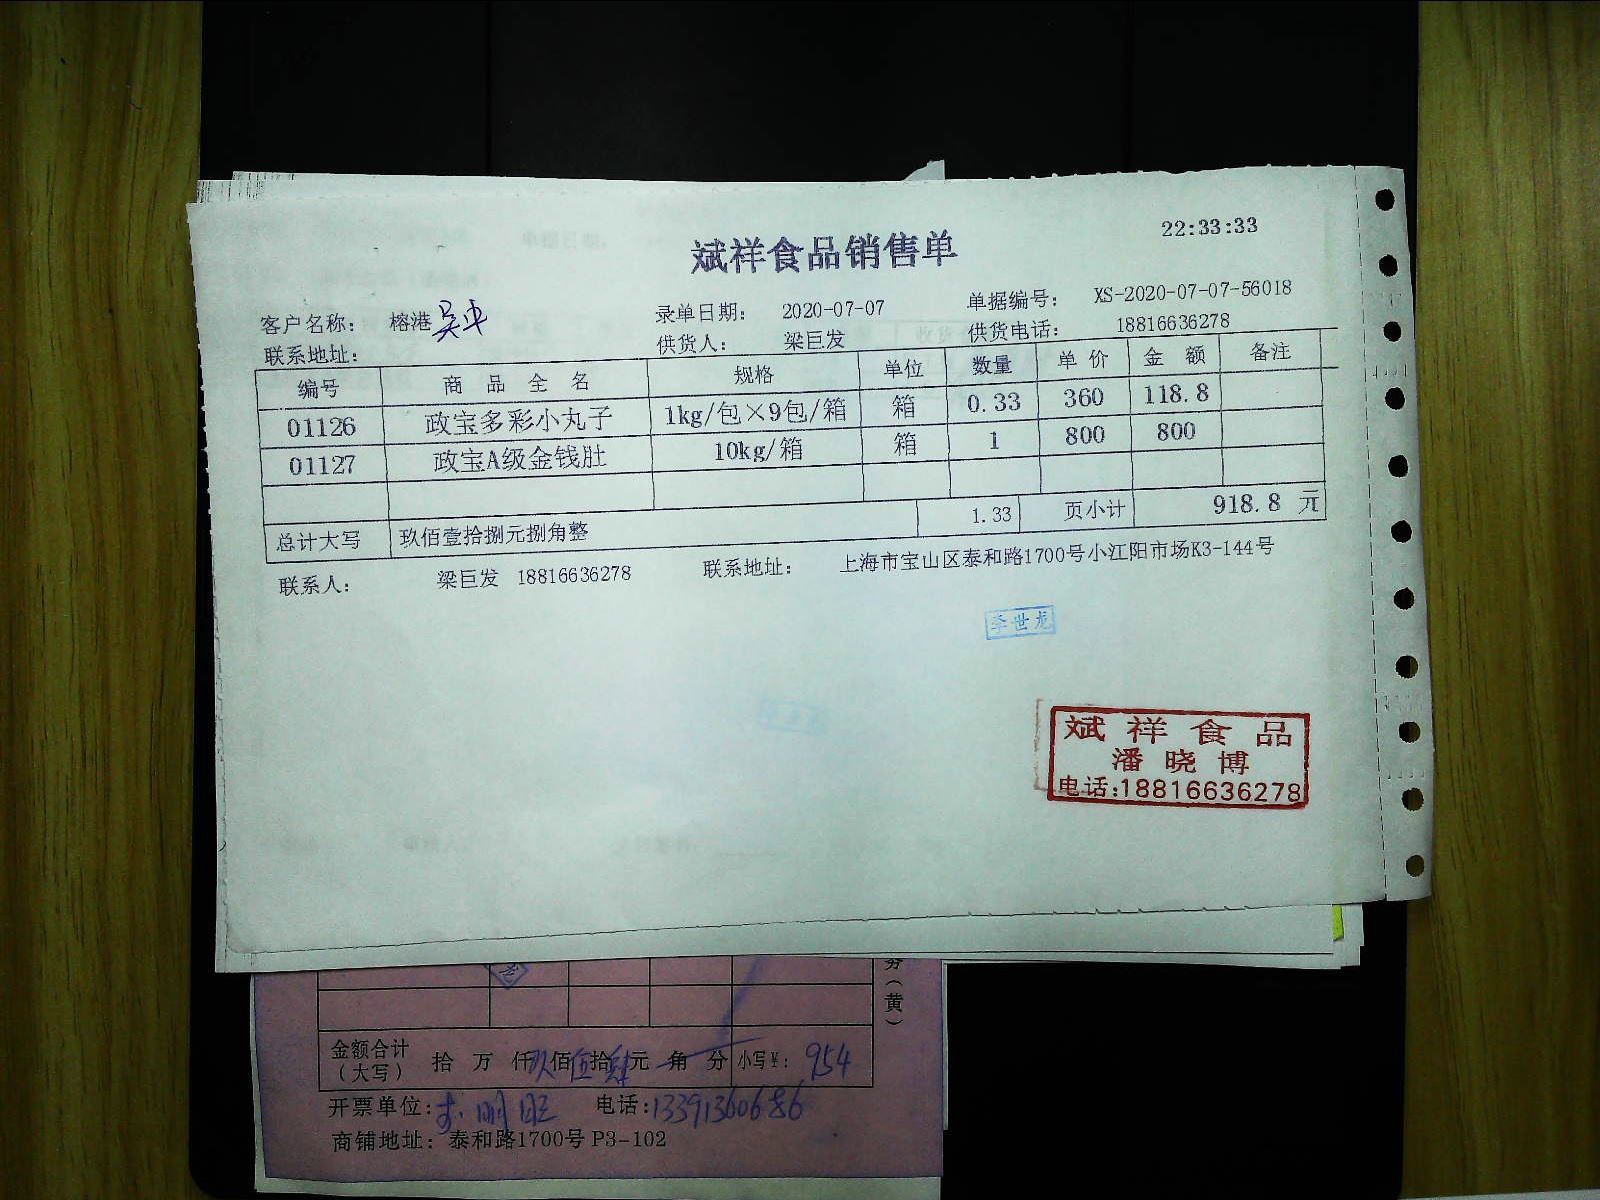 22:33:33
斌祥食品销售单
客户名称: 榕港 录单日期: 2020-07-07 单据编号: XS-2020-07-07-56018
联系地址: 供货人: 梁巨发 供货电话: 18816636278
编号 商品全名 规格 单位 数量 单价 金额 备注
01126 政宝多彩小丸子 1kg/包×9包/箱 箱 0.33 360 118.8
01127 政宝A级金钱肚 10kg/箱 箱 1 800 800
总计大写 玖佰壹拾捌元捌角整 1.33 页小计 918.8 元
联系人: 梁巨发 18816636278 联系地址: 上海市宝山区泰和路1700号小江阳市场K3-144号
李世龙
斌祥食品
潘晓博
电话:18816636278
（黄）
金额合计（大写） 拾 万 仟 玖 佰 伍 拾 肆 元 角 分 小写¥: 954
开票单位: 电话:13391360686
商铺地址: 泰和路1700号 P3-102